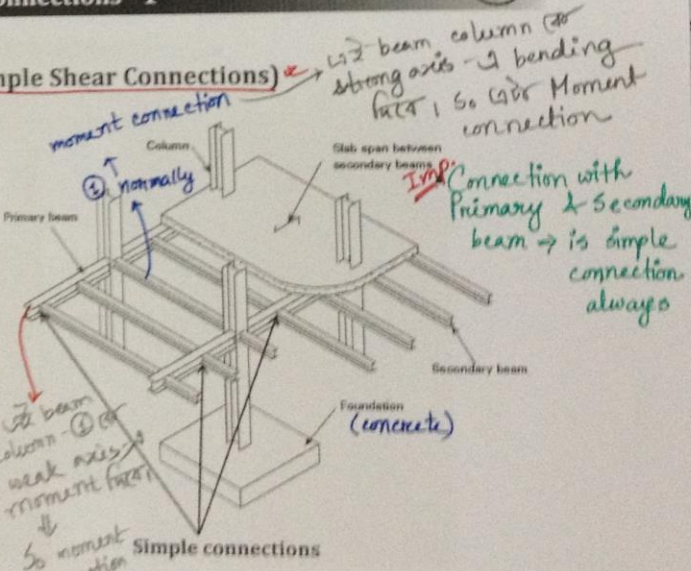 mple Shear Connections)
beam column
strong axis - bending
So Moment
connection
moment connection
① normally
Column
Slab span between
secondary beams
Imp: Connection with
Primary & Secondary
beam → is simple
connection
always
Primary beam
Secondary beam
Foundation
(concrete)
beam
column - ①
weak axis
moment
So moment
Simple connections